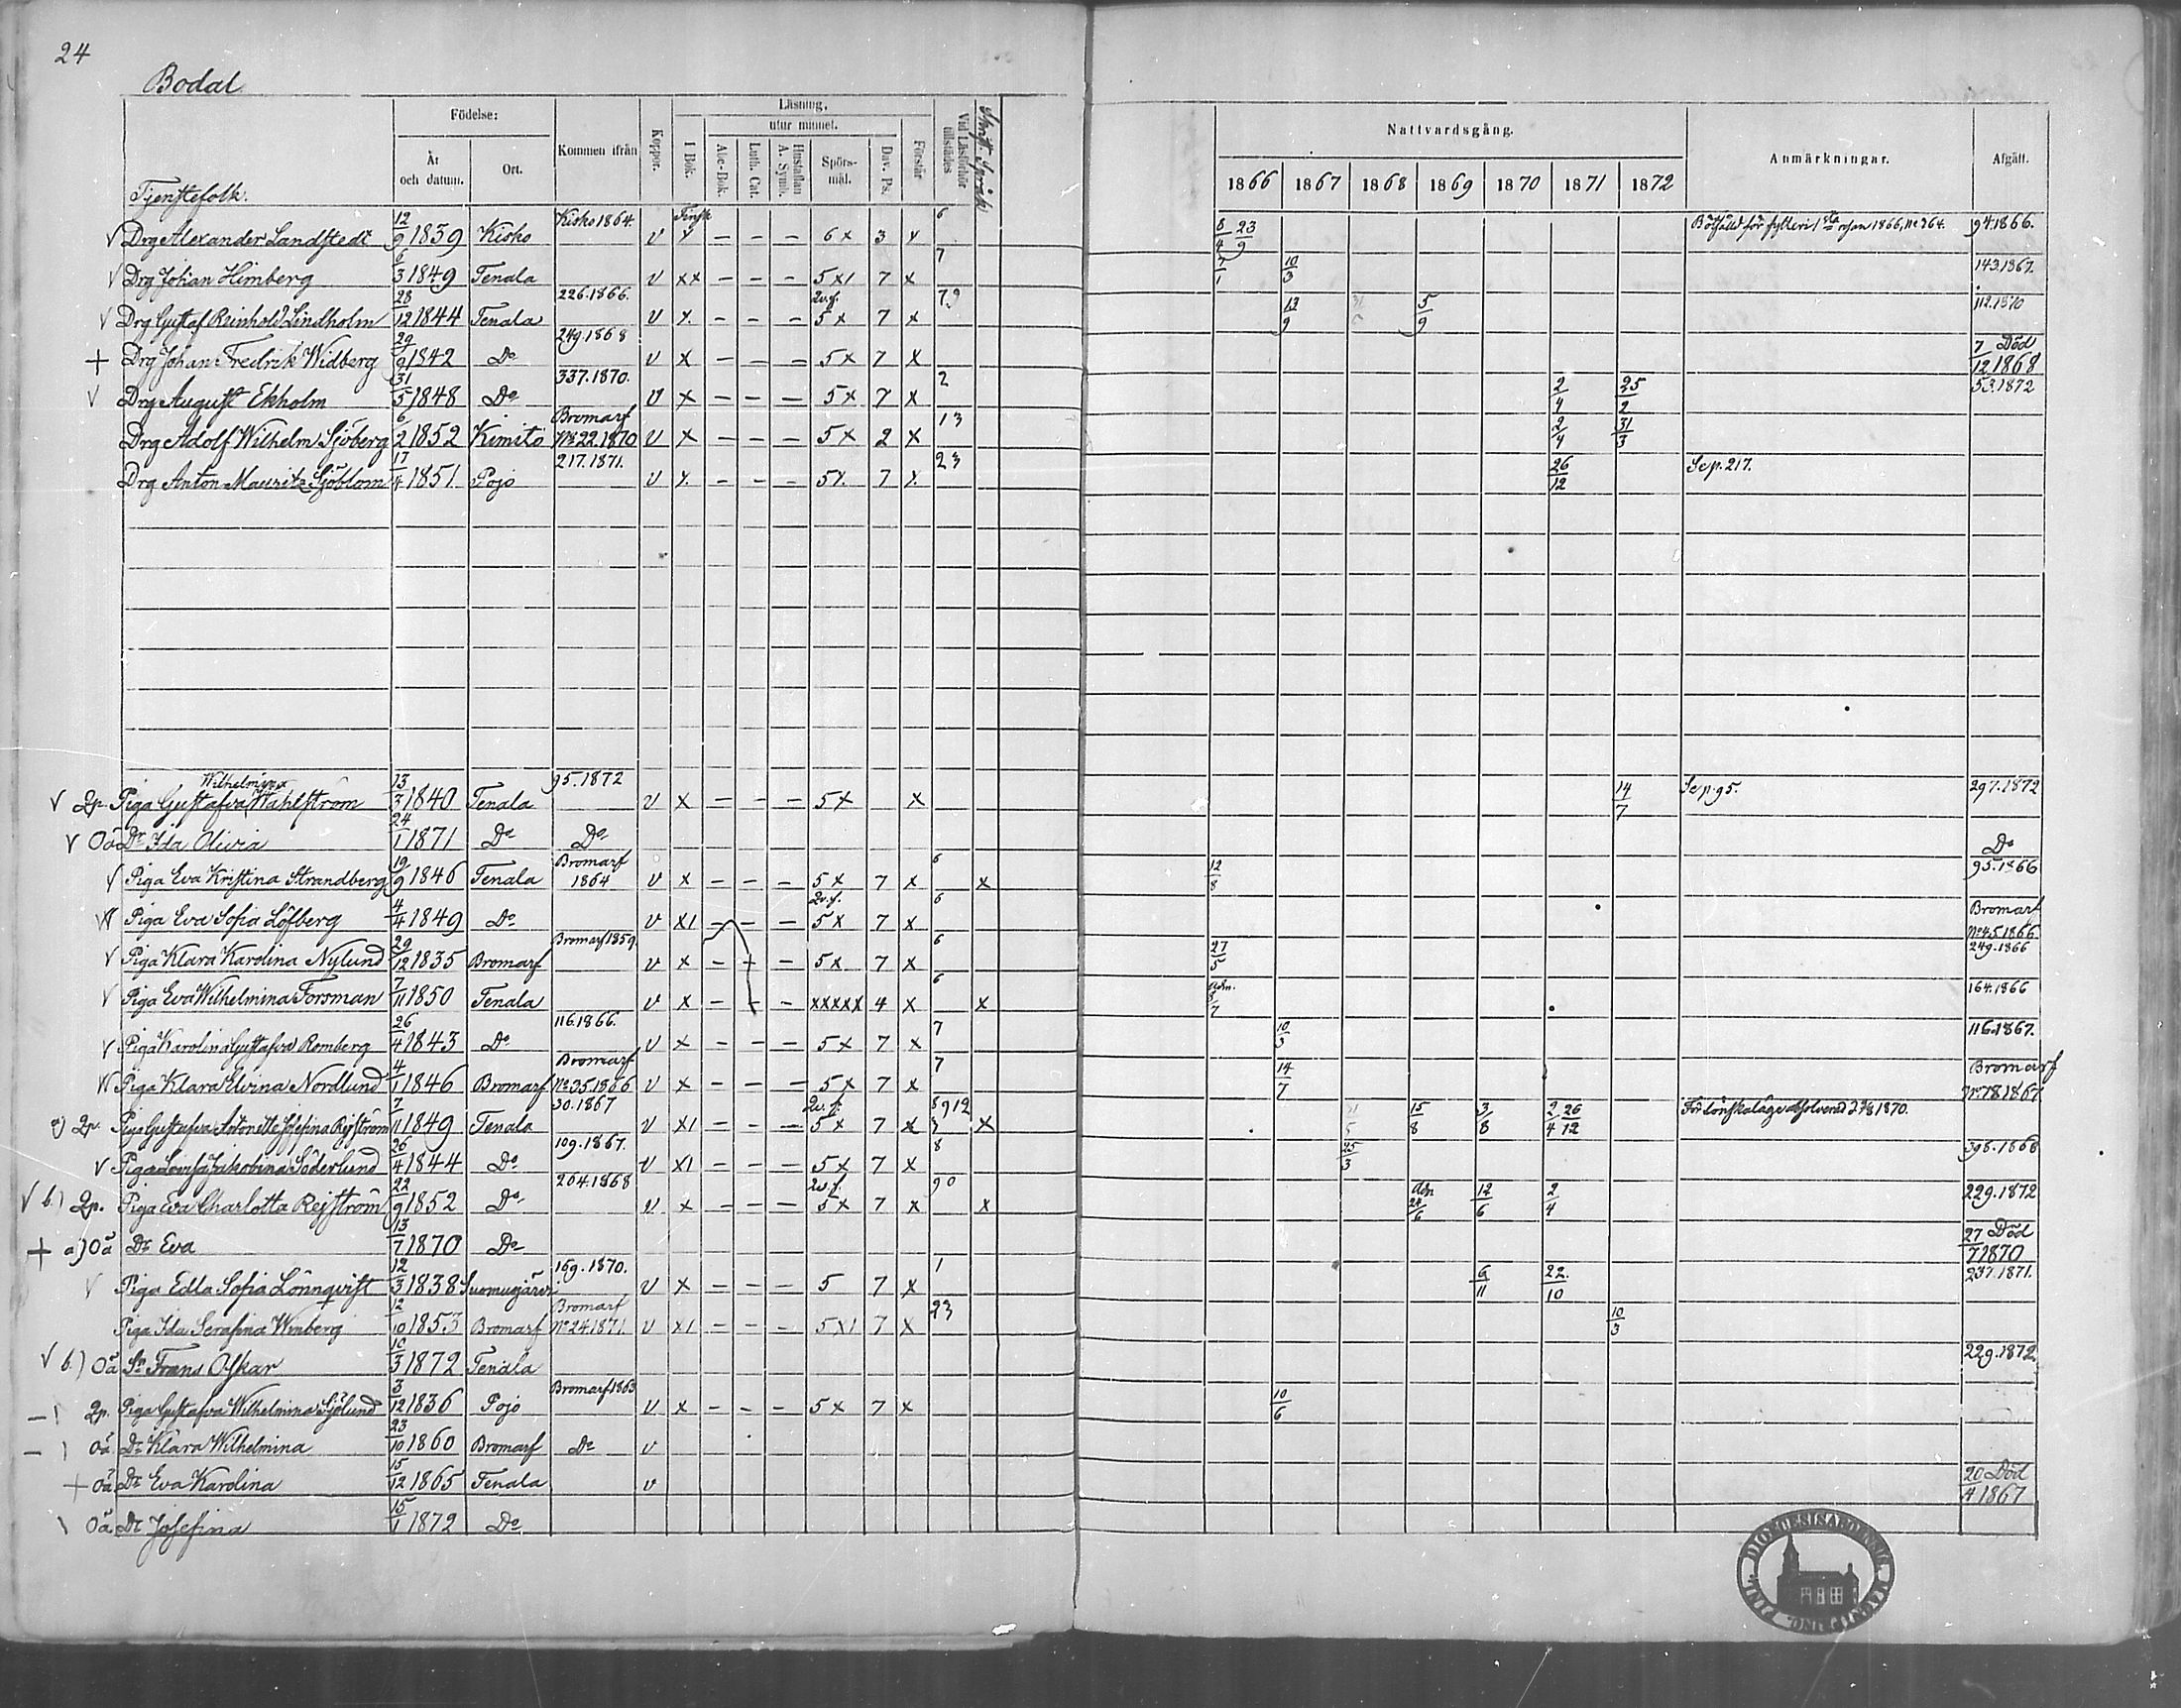 24
Bodal
Tjenstefolk.
Födelse:
År och datum.
Ort.
Kommen ifrån
Koppor.
Läsning.
I Bok.
utur minnet.
Abc-Bok.
Luth. Cat.
Hustaflan A. Symb.
Spörs-mål.
Dav. Ps.
Förstår
Vid Läsförhör tillstädes
Nattvardsgång.
1866 1867 1868 1869 1870 1871 1872
Anmärkningar.
Afgått.
V Drg Alexander Landstedt 12/9 1839 Kisko Kisko 1864. v Finsk x – – – 6 x 3 x 6 8/4 23/9 94.1866.
V Drg Johan Himberg 6/3 1849 Tenala v xx – – – 5 x1 7 x 7 7/1 10/3 143.1867.
V Drg Gustaf Reinhold Lindholm 28/12 1844 Tenala 226.1866. v x – – – 2v.f. 5 x 7 x 7 9 13/9 5/9 112.1870
+ Drg Johan Fredrik Widberg 29/9 1842 Do 249.1868 v x – – – 5 x 7 x 7/12 Död 1868
V Drg August Ekholm 31/5 1848 Do 337.1870. v x – – – 5 x 7 x 2 2/4 25/2 53.1872
Drg Adolf Wilhelm Sjöberg 6/2 1852 Kimito Bromarf No 22.1870 v x – – – 5 x 2 x 13 2/4 31/3
Drg Anton Mauritz Sjöblom 17/4 1851 Pojo 217.1871. v x – – – 5 x 7 x 23 26/12 Se p. 217.
V 2p. Piga Gustafva Wilhelmina Wahlström 13/3 1840 Tenala 95.1872 v x – – – 5 x x 14/7 Se p. 95. 297.1872
V Oä Dr Ida Olivia 24/1 1871 Do Do Do
V Piga Eva Kristina Strandberg 19/9 1846 Tenala Bromarf 1864 v x – – – 5 x 7 x 6 x 12/8 95.1866
Piga Eva Sofia Löfberg 4/4 1849 Do v x1 – – – 2v.f. 5 x 7 x 6 Bromarf No 45.1866.
V Piga Klara Karolina Nylund 29/12 1835 Bromarf Bromarf 1859. v x – – – 5 x 7 x 6 27/5 249.1866
V Piga Eva Wilhelmina Forsman 7/11 1850 Tenala v x – – – xxxxx 4 x 6 x Adm. 8/7 164.1866
V Piga Karolina Gustafva Romberg 26/4 1843 Do 116.1866. v x – – – 5 x 7 x 7 10/3 116.1867.
Piga Klara Elvina Nordlund 4/1 1846 Bromarf Bromarf No 35.1866 v x – – – 5 x 7 x 7 14/7 Bromarf No 78.1867
a) 2p. Piga Gustafva Antonette Josefina Rejström 7/11 1849 Tenala 30.1867 v x1 – – – 2v.f. 5 x 7 x 8 9 12 3 x 15/8 3/8 2/4 26/12 För lönskaläge absolverad 1870.
V Piga Lovisa Jakobina Söderlund 26/4 1844 Do 109.1867. v x1 – – – 5 x 7 x 8 25/3 398.1868
V b.) 2p. Piga Eva Charlotta Rejström 22/9 1852 Do 204.1868 v x – – – 2v.f. 5 x 7 x 9 0 x Adm 24/6 12/6 2/4 229.1872
+ a) Oä Dr Eva 13/7 1870 Do 27/7 Död 1870
V Piga Edla Sofia Lönnqvist 12/3 1838 Suomusjärvi 169.1870. v x – – – 5 7 x 1 6/11 22/10 237.1871.
Piga Ida Serafina Winberg 12/10 1853 Bromarf Bromarf No 24.1871. v x1 – – – 5 x1 7 x 23 10/3
V b.) Oä Sn Frans Oskar 10/3 1872 Tenala 229.1872.
2p. Piga Gustafva Wilhelmina Sjölund 3/12 1836 Pojo Bromarf 1863 v x – – – 5 x 7 x 10/6
Oä Dr Klara Wilhelmina 23/10 1860 Bromarf Do v
+ Oä Dr Eva Karolina 15/12 1865 Tenala v 20/4 Död 1867
Oä Dr Josefina 15/1 1872 Do